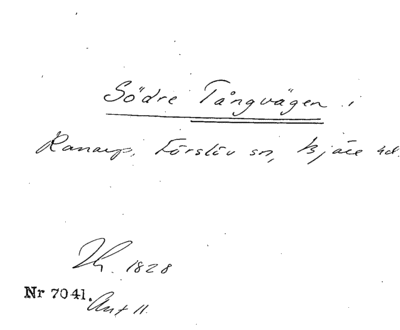 Södre Tångvägen i
Ranarp, Förslöv sn, Bjäre hd.
Th. 1828
Nr 7041. Ant 11.